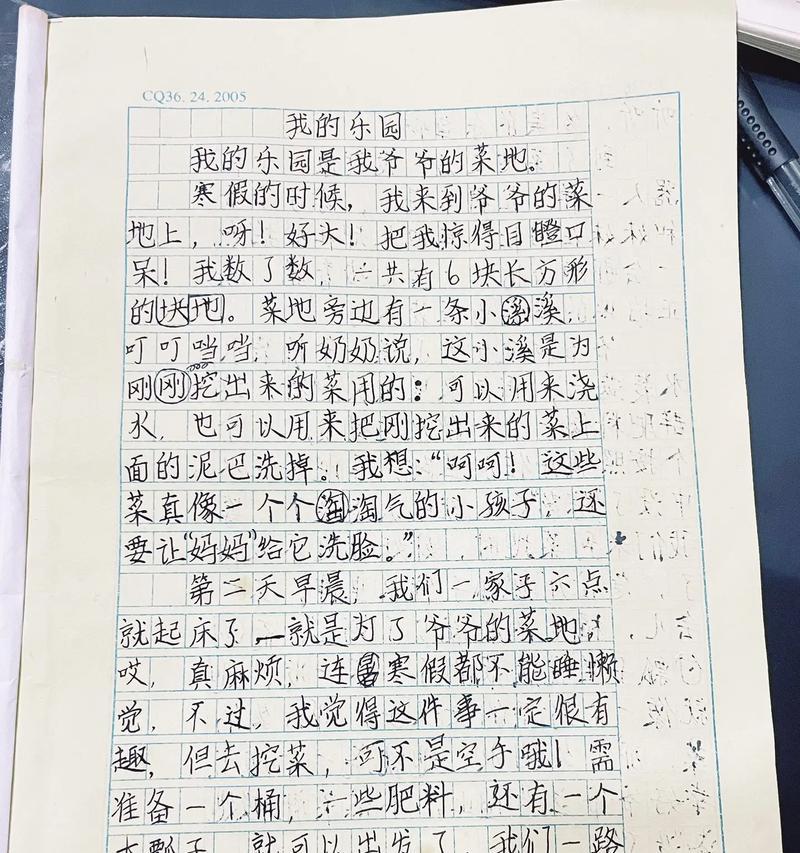 CQ36.24.2005
我的乐园
我的乐园是我爷爷的菜地。
寒假的时候，我来到爷爷的菜
地上，呀！好大！把我惊得目瞪口
呆！我数了数，一共有6块长方形
的块地。菜地旁边有一条小溪，
叮叮当当，听奶奶说，这小溪是为
刚挖出来的菜用的：可以用来浇
水，也可以用来把刚挖出来的菜上
面的泥巴洗掉。我想：“呵呵！这些
菜真像一个个淘气的小孩子，还
要让“妈妈”给它洗脸。”
第二天早晨，我们一家子六点
就起床了—就是为了爷爷的菜地，
哎，真麻烦，连寒假都不能睡懒
觉，不过，我觉得这件事一定很有
趣，但去挖菜，可不是空手哦！需
准备一个桶，一些肥料，还有一个
水瓢子，就可以出发了，我们一路